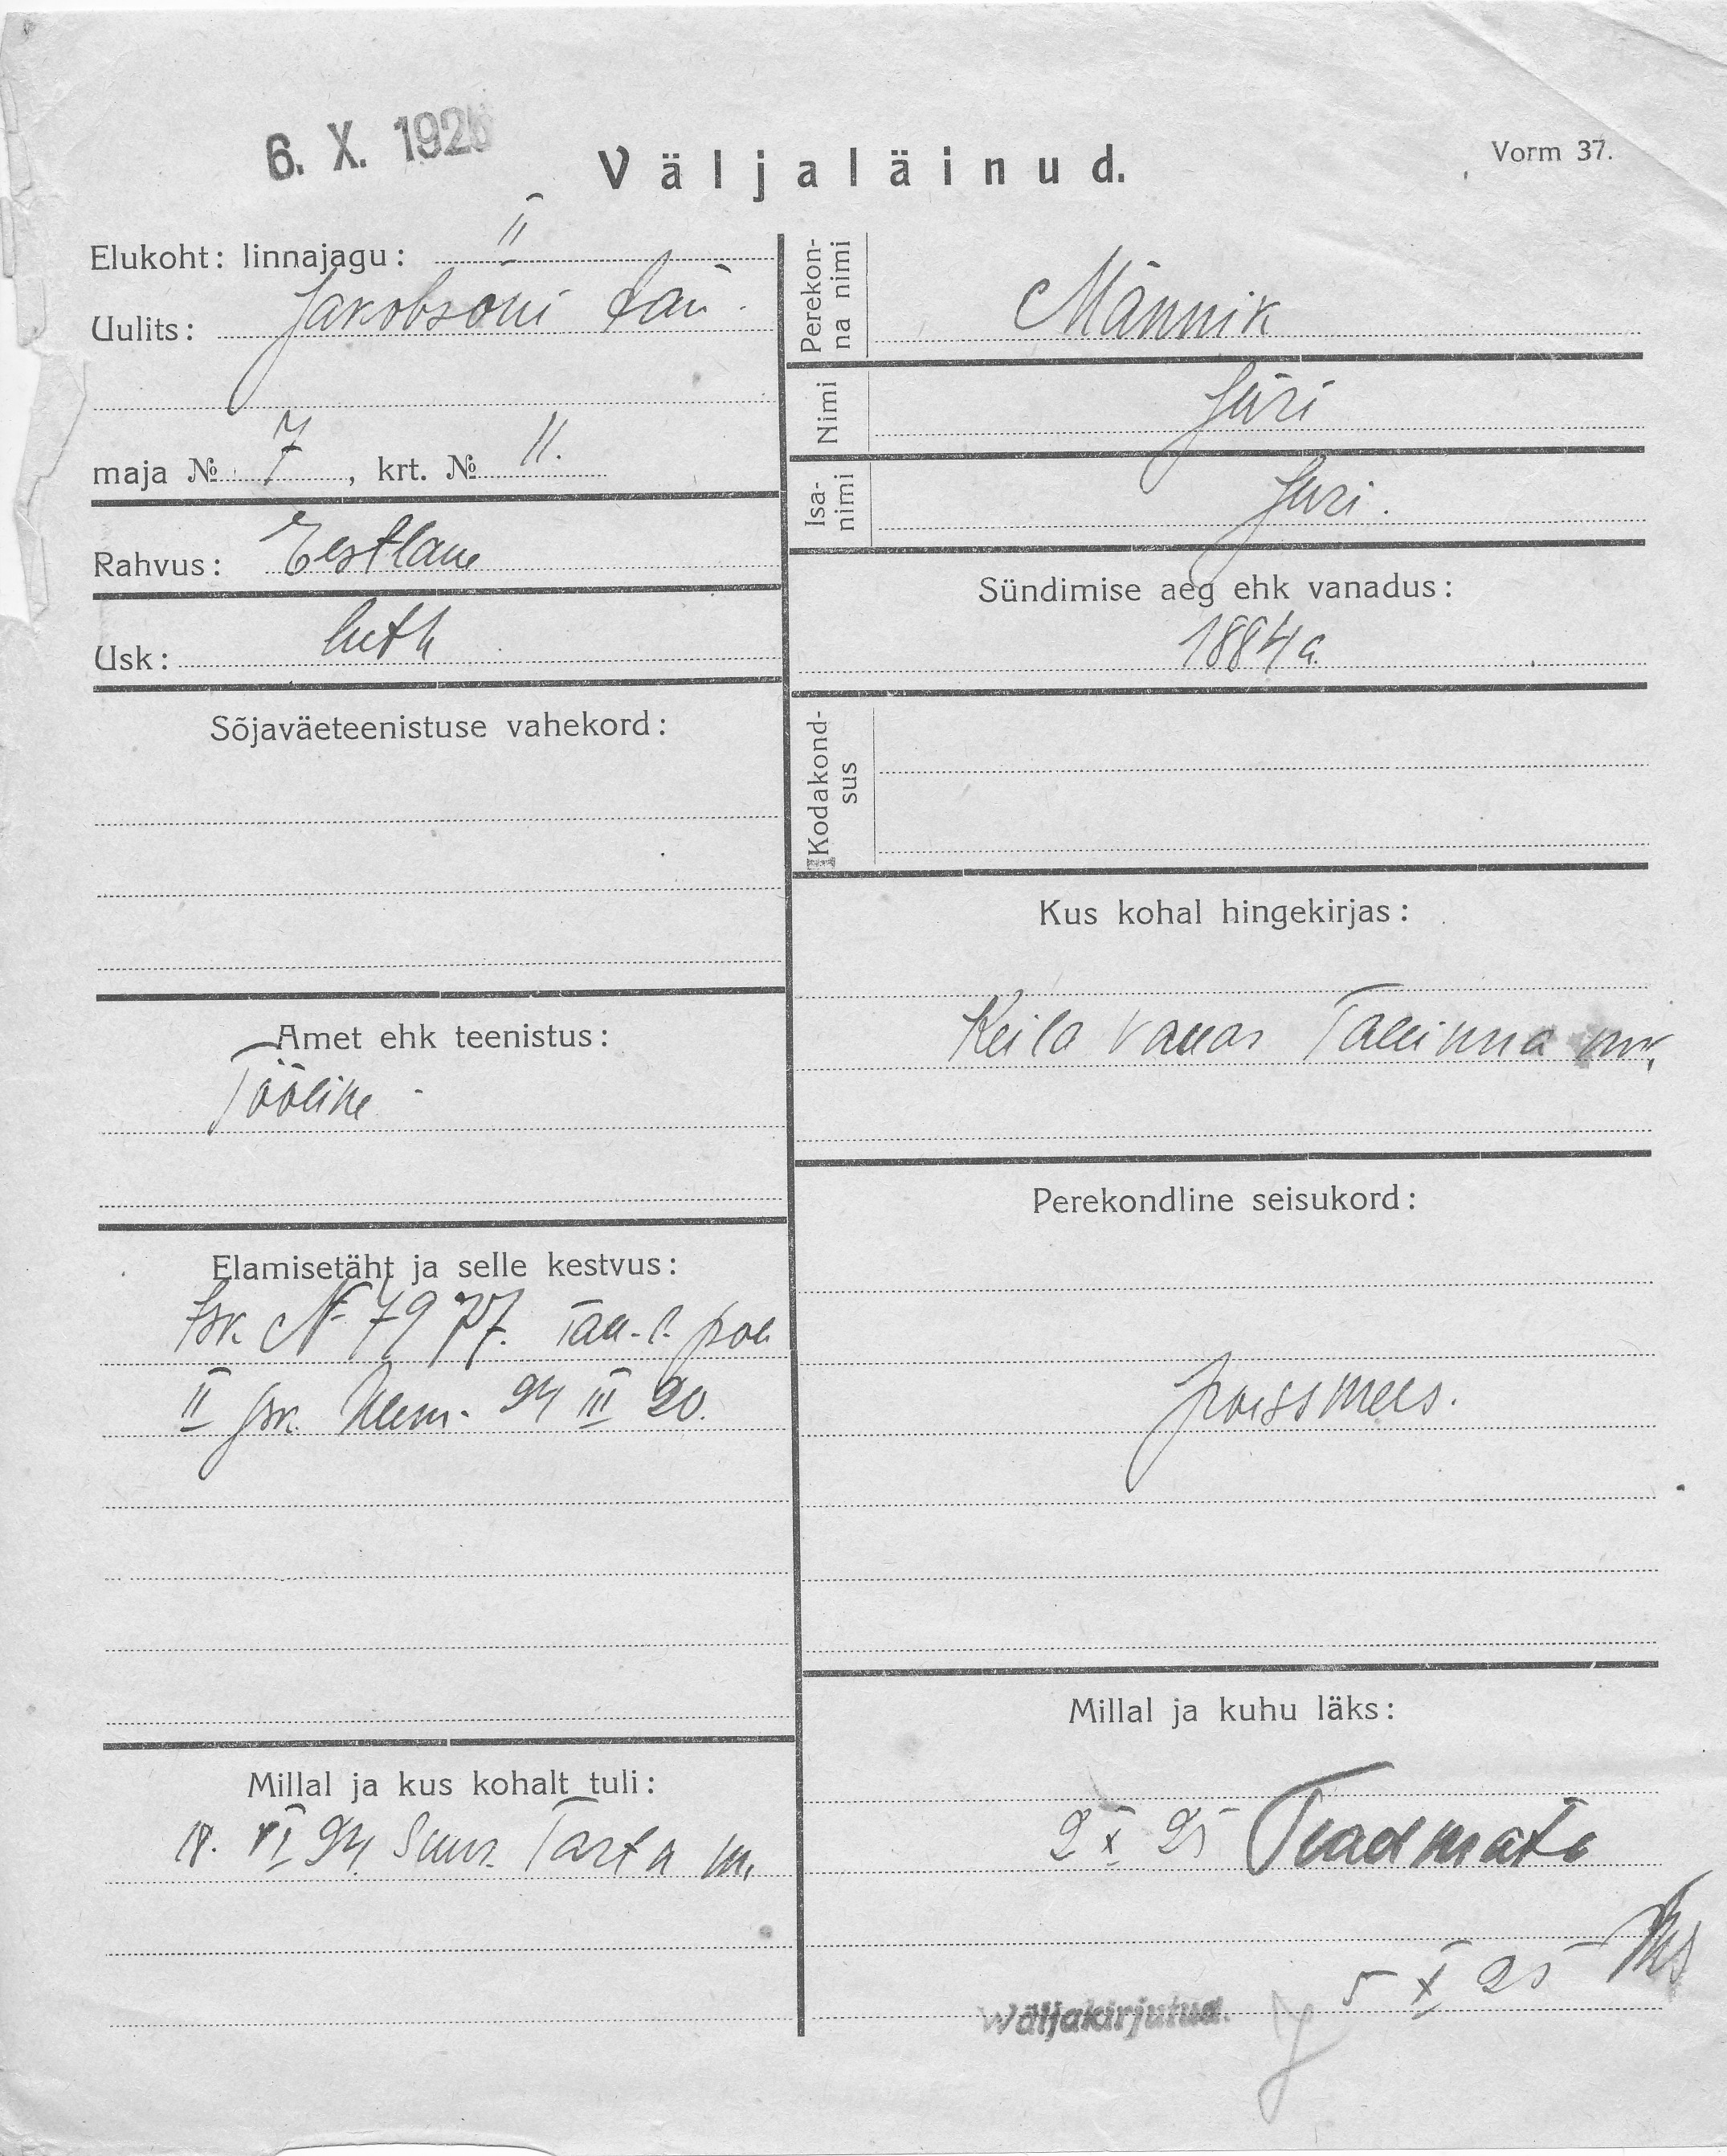 6. X. 1925
Väljaläinud.
Vorm 37.
Elukoht: linnajagu: II
Uulits: Jakobsoni tän.
maja № 7, krt. № 11.
Rahvus: Eestlane
Usk: luth
Sõjaväeteenistuse vahekord:
Amet ehk teenistus:
Tööline
Elamisetäht ja selle kestvus:
Isk. № 7977. Tall. l. pol
II jsk. 24 III 20.
Millal ja kus kohalt tuli:
18. VI 24. Suur Tartu m.
Perekonna nimi
Männik
Nimi
Jüri
Isanimi
Juri.
Sündimise aeg ehk vanadus:
1884 a.
Kodakondsus
Kus kohal hingekirjas:
Keila Tallinna
Perekondline seisukord:
poissmees.
Millal ja kuhu läks:
2 X 25 Teadmata
5 X 25
Wäljakirjutud.